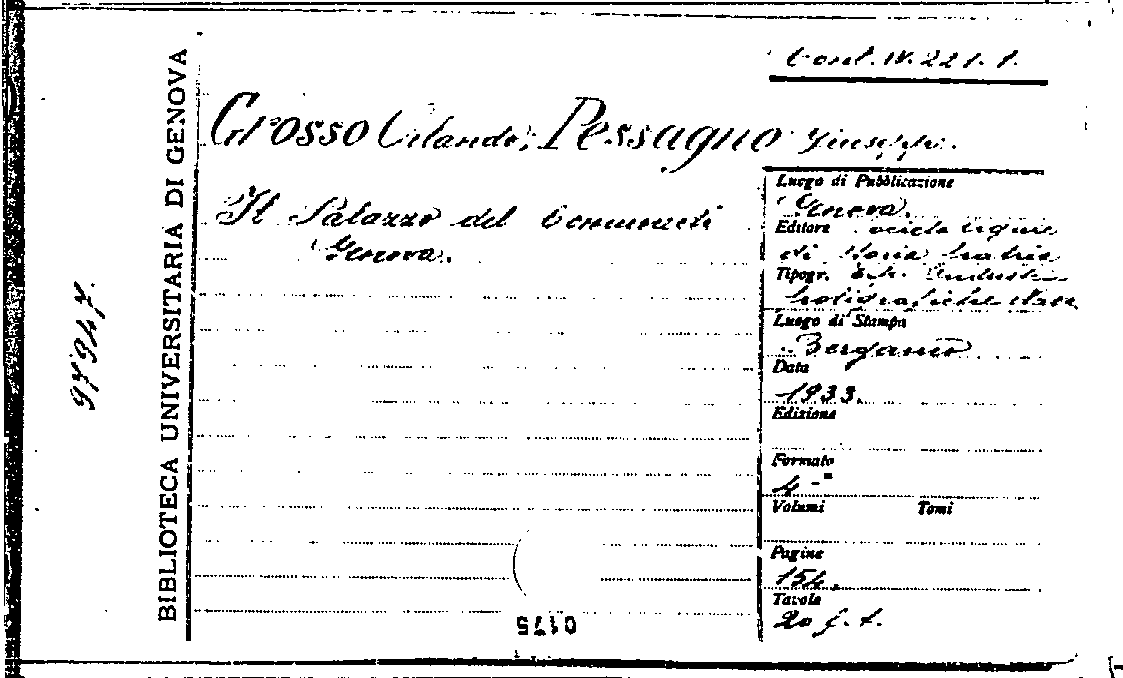 Cont. IV. 221. 1.
Grosso Orlando; Pessagno Giuseppe.
Il Palazzo del Comune di
Genova.
Luogo di Pubblicazione
Genova.
Editore Società Ligure
di Storia Patria
Tipogr. Industrie
Poligrafiche
Luogo di Stampa
Bergamo
Data
1933.
Edizione
Formato
4-°
Volumi Tomi
Pagine
154.
Tavole
20 f. t.
BIBLIOTECA UNIVERSITARIA DI GENOVA
97947.
0175